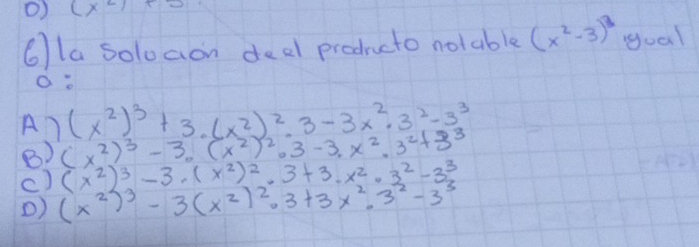 D) (x²)
6) la solocion deel producto notable (x²-3)³ igual
a:
A) (x²)³ + 3.(x²)².3 - 3x².3² - 3³
B) (x²)³ - 3.(x²)².3 - 3.x².3² + 3³
C) (x²)³ - 3.(x²)².3 + 3.x².3² - 3³
D) (x²)³ - 3(x²)².3 + 3x².3² - 3³